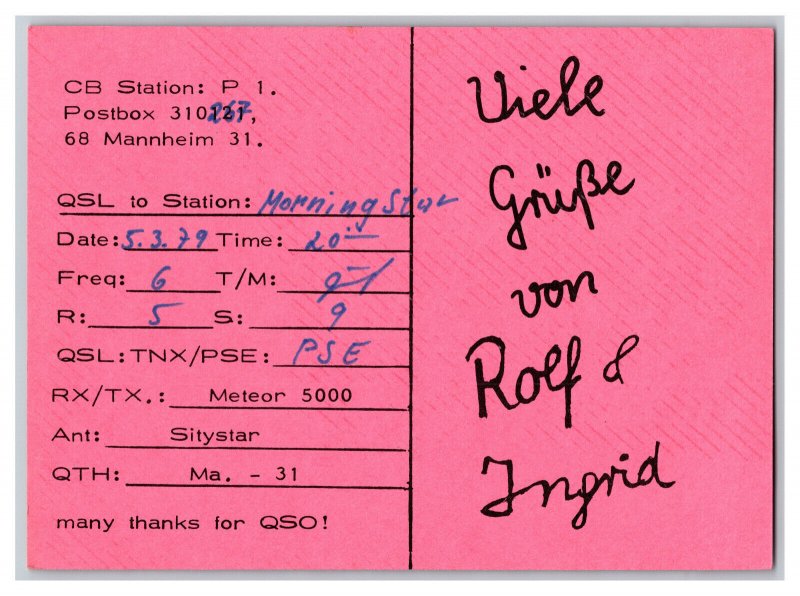 CB Station: P 1.
Postbox 310267,
68 Mannheim 31.
QSL to Station: Morning Star
Date: 5.3.79 Time: 20.—
Freq: 6 T/M:
R: 5 S: 9
QSL:TNX/PSE: PSE
RX/TX.: Meteor 5000
Ant: Sitystar
QTH: Ma. - 31
many thanks for QSO!
Viele
Grüße
von
Rolf &
Ingrid